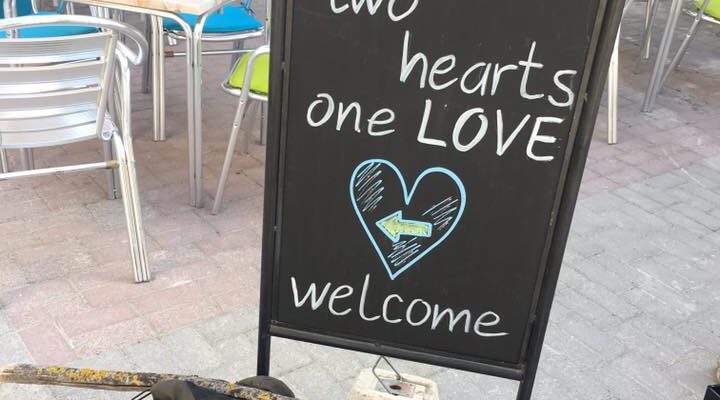 two
hearts
one LOVE
welcome